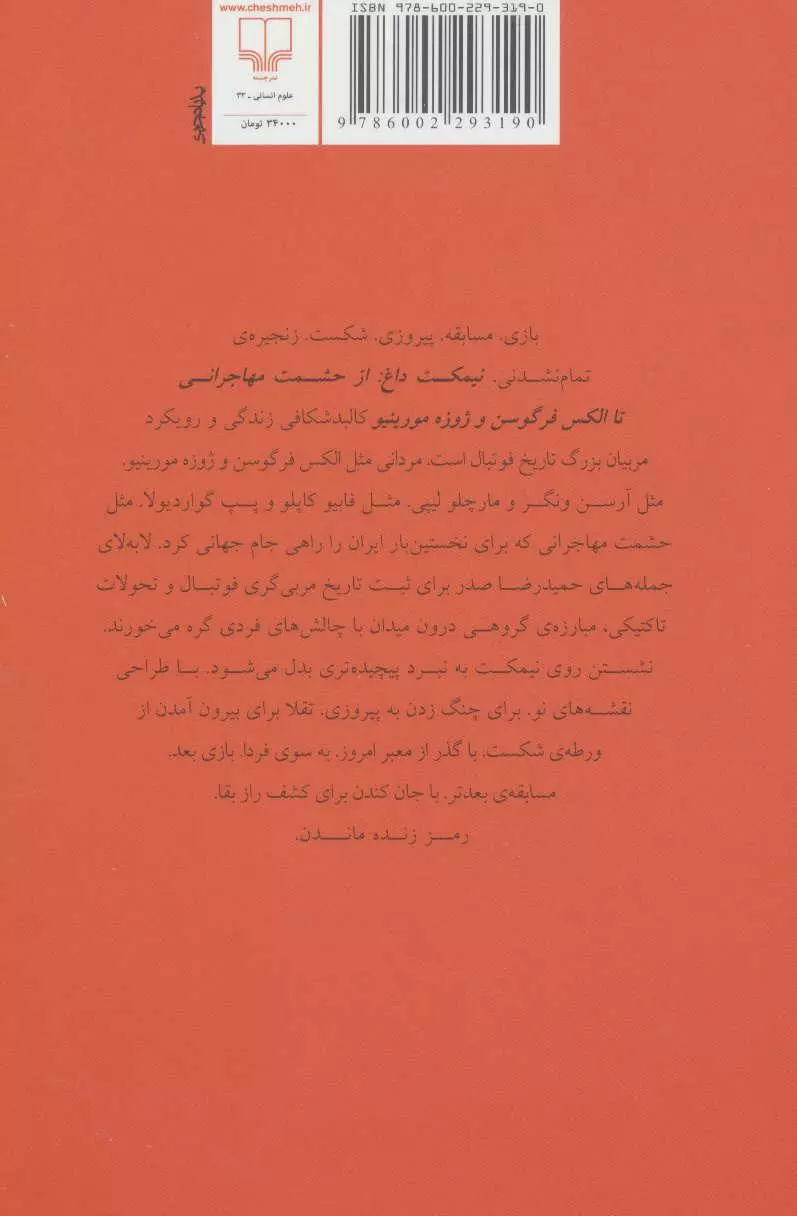 www.cheshmeh.ir
نشر چشمه
علوم انسانی ـ ۳۲
۳۴۰۰۰ تومان
ISBN 978-600-229-319-0
9 786002 293190
بازی. مسابقه. پیروزی. شکست. زنجیره‌ی
تمام‌نشدنی. نیمکت داغ: از حشمت مهاجرانی
تا الکس فرگوسن و ژوزه مورینیو کالبدشکافی زندگی و رویکرد
مربیان بزرگ تاریخ فوتبال است. مردانی مثل الکس فرگوسن و ژوزه مورینیو.
مثل آرسن ونگر و مارچلو لیپی. مثل فابیو کاپلو و پپ گواردیولا. مثل
حشمت مهاجرانی که برای نخستین‌بار ایران را راهی جام جهانی کرد. لابه‌لای
جمله‌های حمیدرضا صدر برای ثبت تاریخ مربی‌گری فوتبال و تحولات
تاکتیکی، مبارزه‌ی گروهی درون میدان با چالش‌های فردی گره می‌خورند.
نشستن روی نیمکت به نبرد پیچیده‌تری بدل می‌شود. با طراحی
نقشه‌های نو. برای چنگ زدن به پیروزی. تقلا برای بیرون آمدن از
ورطه‌ی شکست. با گذر از معبر امروز. به سوی فردا. بازی بعد.
مسابقه‌ی بعدتر. با جان کندن برای کشف راز بقا.
رمز زنده ماندن.